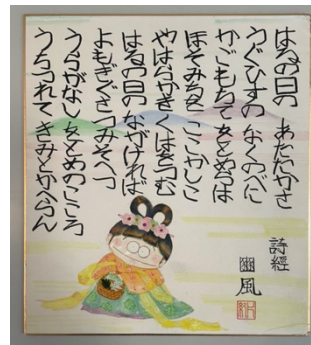 はるの日の　あたたかさ
うぐひすの　なくのべに
かごもちて　をとめらは
ほそみちを　ここかしこ
やはらかき　くはをつむ
はるの日の　ながければ
よもぎぐさ　つみそへつ
うらがなし　をとめのこころ
うちつれて　きみとかへらん
詩經
豳風